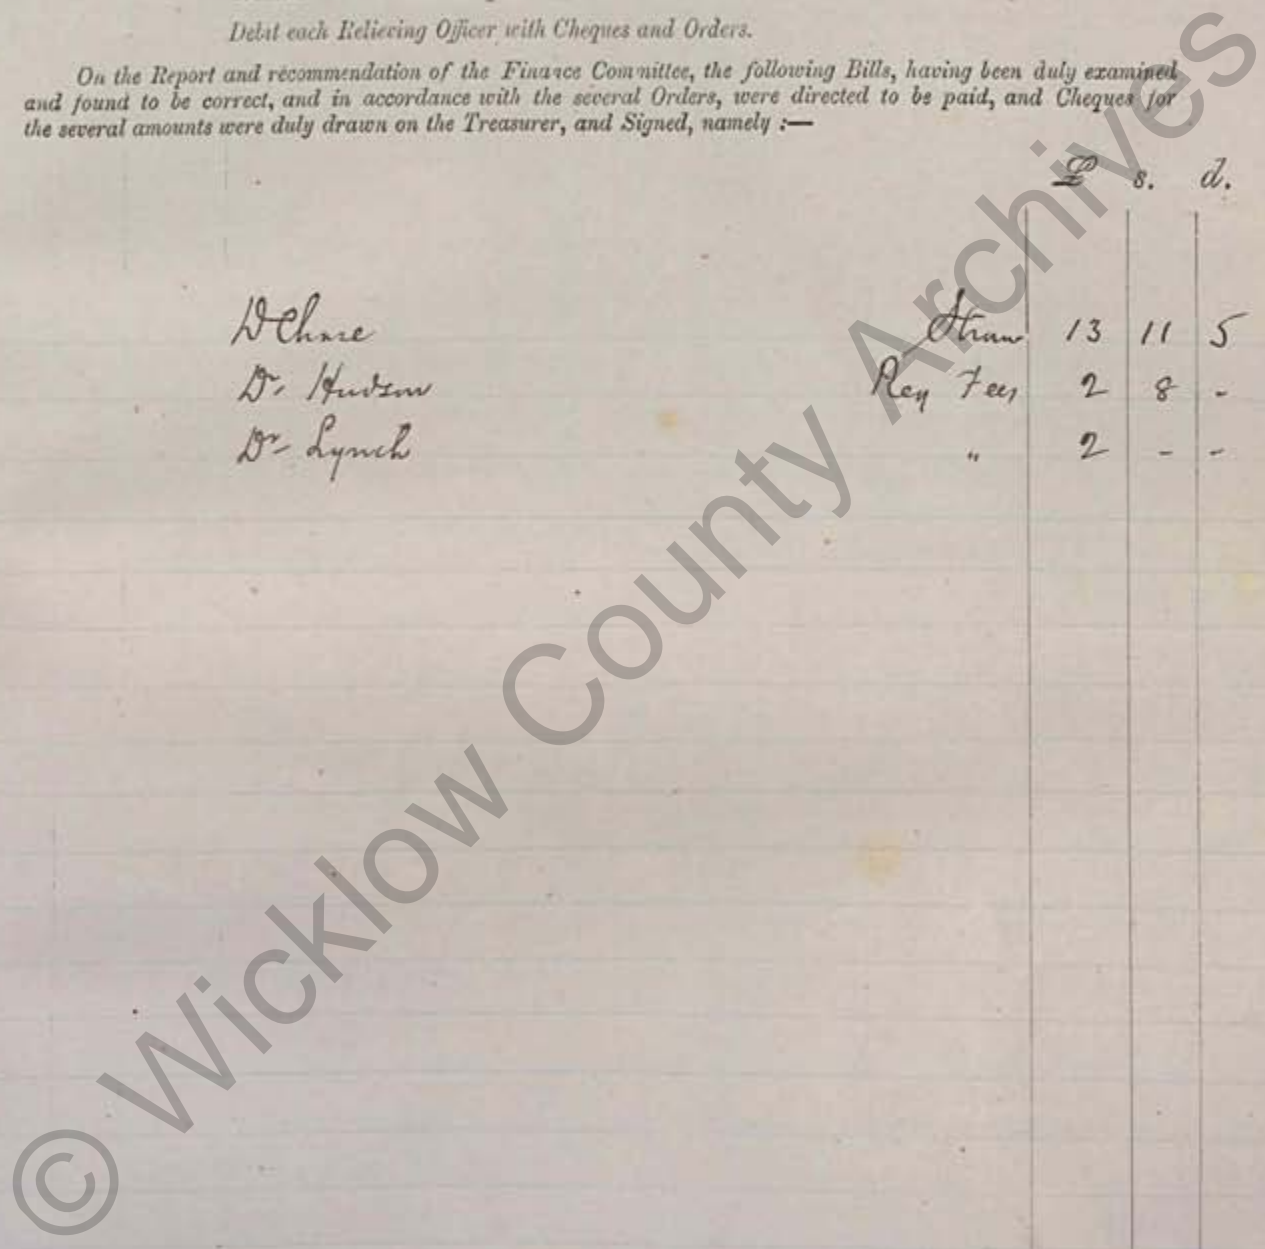 Debit each Relieving Officer with Cheques and Orders.
On the Report and recommendation of the Finance Committee, the following Bills, having been duly examined
and found to be correct, and in accordance with the several Orders, were directed to be paid, and Cheques for
the several amounts were duly drawn on the Treasurer, and Signed, namely :—
£ s. d.
D Straw 13 11 5
Dr. Hudson Reg Fees 2 8 -
Dr Lynch " 2 - -
© Wicklow County Archives